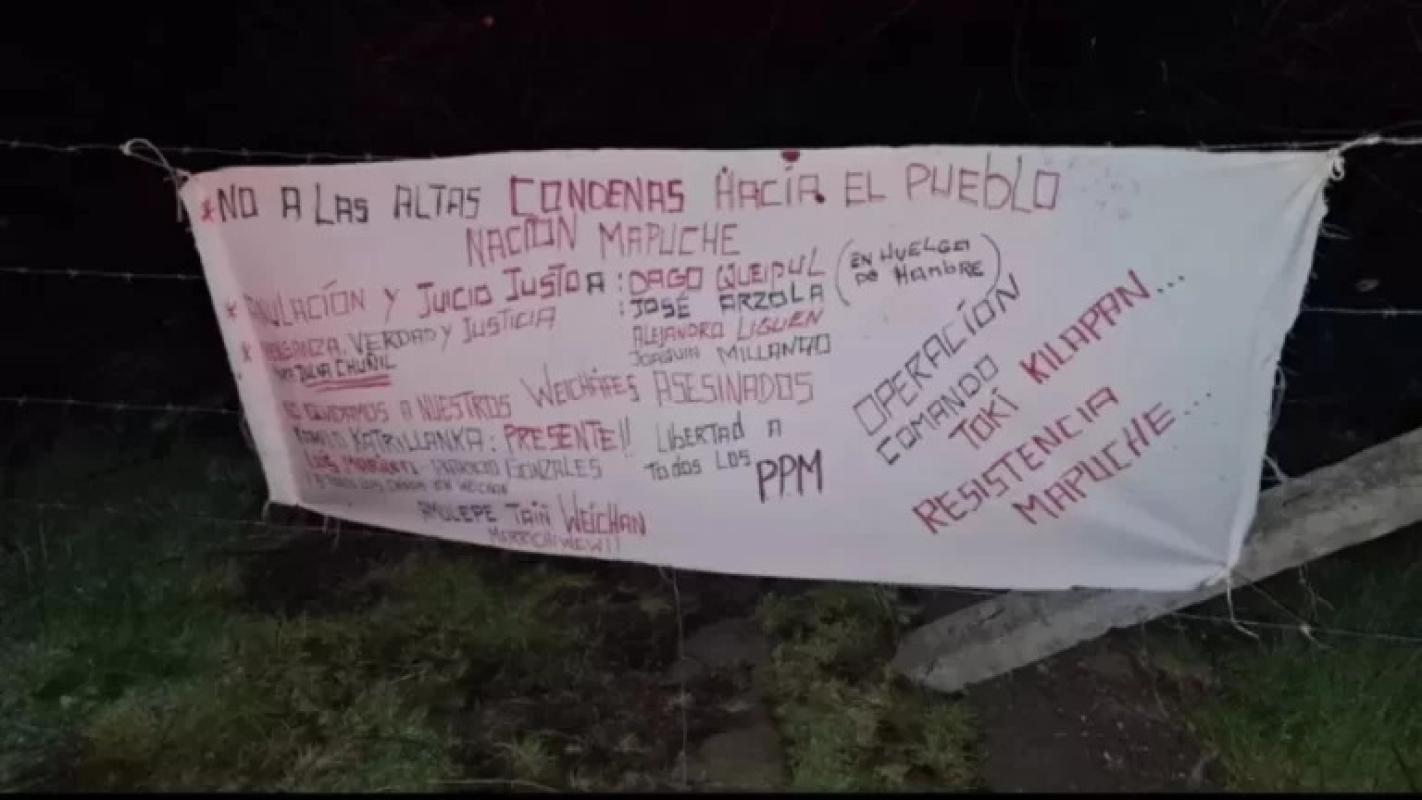 * NO A LAS ALTAS CONDENAS HACÍA EL PUEBLO
NACIÓN MAPUCHE
* ANULACÍON Y JUICIO JUSTO A : DAGO QUEIPUL (EN HUELGA
: JOSÉ ARZOLA DE HAMBRE)
* VENGANZA, VERDAD Y JUSTICIA ALEJANDRO LIGUEN
JULIA CHUÑIL JOAQUIN MILLANAO
NO OLVIDAMOS A NUESTROS WEICHAFES ASESINADOS
KATRILLANKA : PRESENTE!! LIBERTAD A
LUIS GONZALES TODOS LOS PPM
AMULEPE TAIÑ WEICHAN
MARRICHIWEW!!
OPERACÍON
COMANDO
TOKÍ KILAPAN...
RESISTENCIA
MAPUCHE...